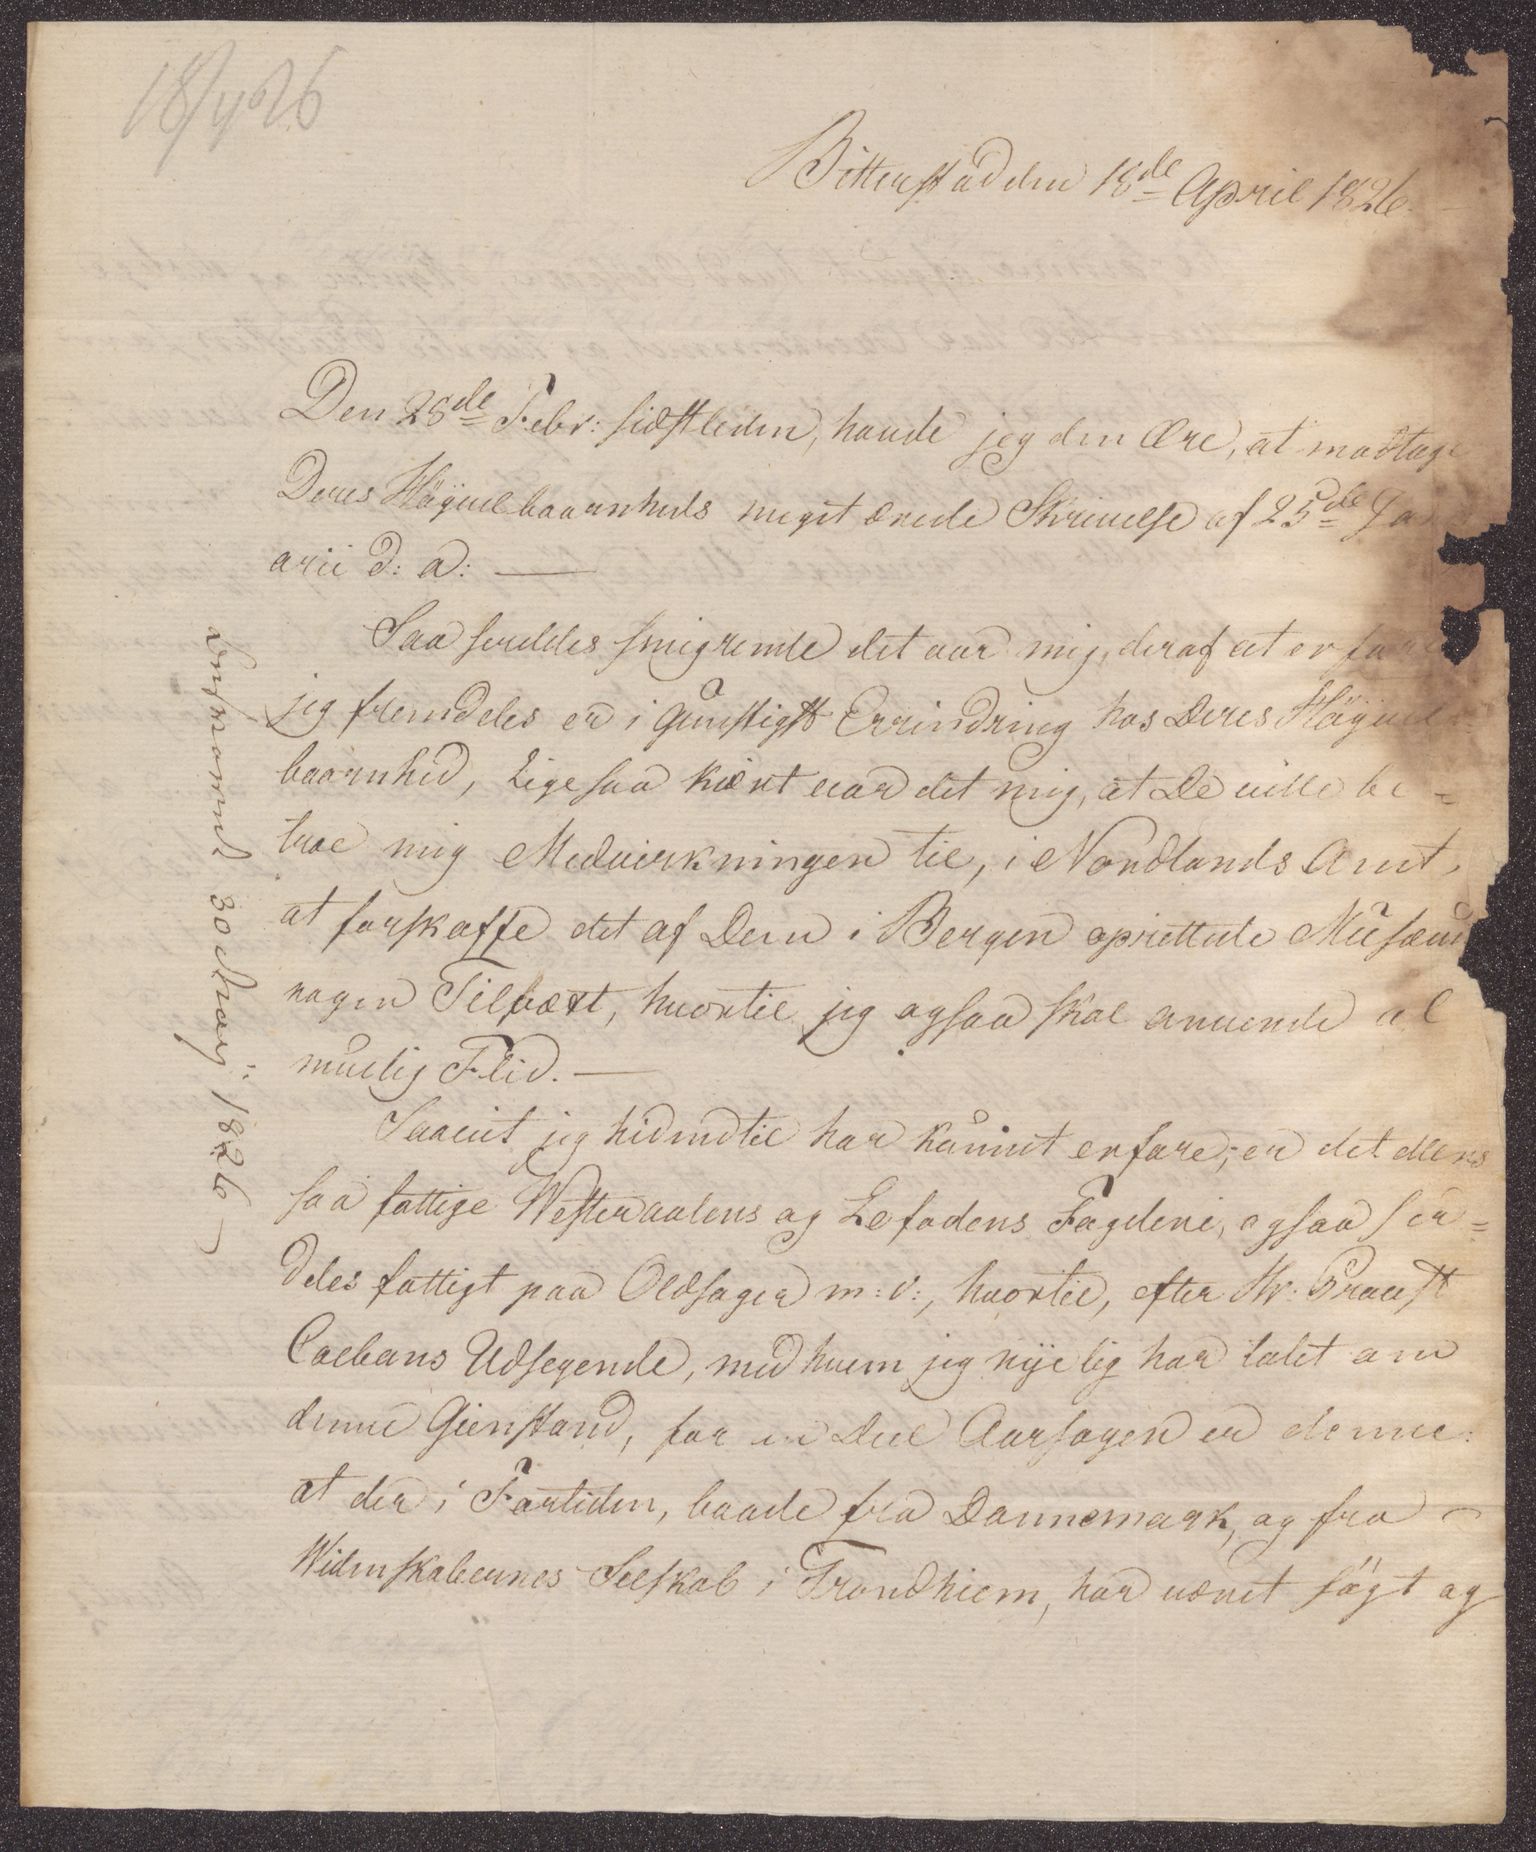 18/4 26
Bitterstad den 18de April 1826.
Den 28de Febr: sidstleden, havde jeg den Ære, at modtage
Deres Höÿvelbaarnheds meget ærede Skrivelse af 25de Janu
arii d: a: —
Saa særdeles smigrende det var mig, deraf at erfare
jeg fremdeles er i gunstigst Errindring hos Deres Höÿvel-
baarnhed, Ligesaa kiært var det mig, at De ville be-
troe mig Medvirkningen til, i Nordlands Amt,
at forskaffe det af Dem i Bergen oprettede Musæum
nogen Tilvæxt, hvortil jeg ogsaa skal anvende al
muelig Flid. —
Saavit jeg hidindtil har kunnet erfare, er det ellers
saa fattige Westeraalens og Lofodens Fogderie, ogsaa sær=
deles fattigt paa Oldsager m: v:, hvortil, efter Hr: Provst
Colbans Udsigende, med hvem jeg nÿelig har talet om
denne Gienstand, for en Deel Aarsagen er denne:
at der i Fortiden, baade fra Dannemark, og fra
Widenskabernes Selskab i Trondhiem, har været sögt og
30 Maÿ: 1826